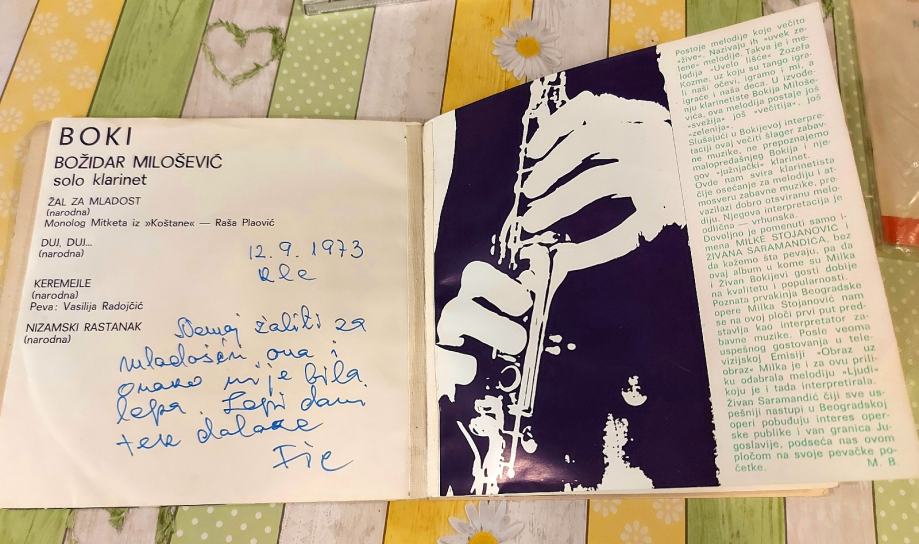 BOKI
BOŽIDAR MILOŠEVIĆ
solo klarinet
ŽAL ZA MLADOST
(narodna)
Monolog Mitketa iz »Koštane« — Raša Plaović
DUJ, DUJ...
(narodna)
KEREMEJLE
(narodna)
Peva: Vasilija Radojčić
NIZAMSKI RASTANAK
(narodna)
12.9.1973
Nemoj žaliti za
mladošću, ona i
onako nije bila
lepa. Lepi dani
tek dolaze
Postoje melodije koje večito
»žive«. Nazivaju ih »uvek ze-
lene« melodije. Takva je i me-
lodija »Uvelo lišće« Žozefa
Kozme, uz koju su tango igra-
li naši očevi, igramo i mi, a
igraće i naša deca. U izvođe-
nju klarinetiste Bokija Miloše-
vića, ova melodija postaje još
»svežija« još »večitija«, još
»zelenija«.
Slušajući u Bokijevoj interpre-
taciji ovaj večiti šlager zabav-
ne muzike, ne prepoznajemo
malopređašnjeg Bokija i nje-
gov »južnjački« klarinet.
Ovde nam svira klarinetista
čije osećanje za melodiju i at-
mosveru zabavne muzike, pre-
vazilazi dobro otsviranu melo-
diju. Njegova interpretacija je
odlična — vrhunska.
Dovoljno je pomenuti samo i-
mena MILKE STOJANOVIĆ i
ŽIVANA SARAMANDIĆA, bez
da kažemo šta pevaju, pa da
ovaj album u kome su Milka
i Živan Bokijevi gosti dobije
na kvalitetu i popularnosti.
Poznata prvakinja Beogradske
opere Milka Stojanović nam
se na ovoj ploči prvi put pred-
stavlja kao interpretator za-
bavne muzike. Posle veoma
uspešnog gostovanja u tele-
vizijskoj Emisiji »Obraz uz
obraz« Milka je i za ovu prili-
ku odabrala melodiju »Ljudi«
koju je i tada interpretirala.
Živan Saramandić čiji sve us-
pešniji nastupi u Beogradskoj
operi pobuđuju interes oper-
ske publike i van granica Ju-
goslavije, podseća nas ovom
pločom na svoje pevačke po-
četke.
M. B.